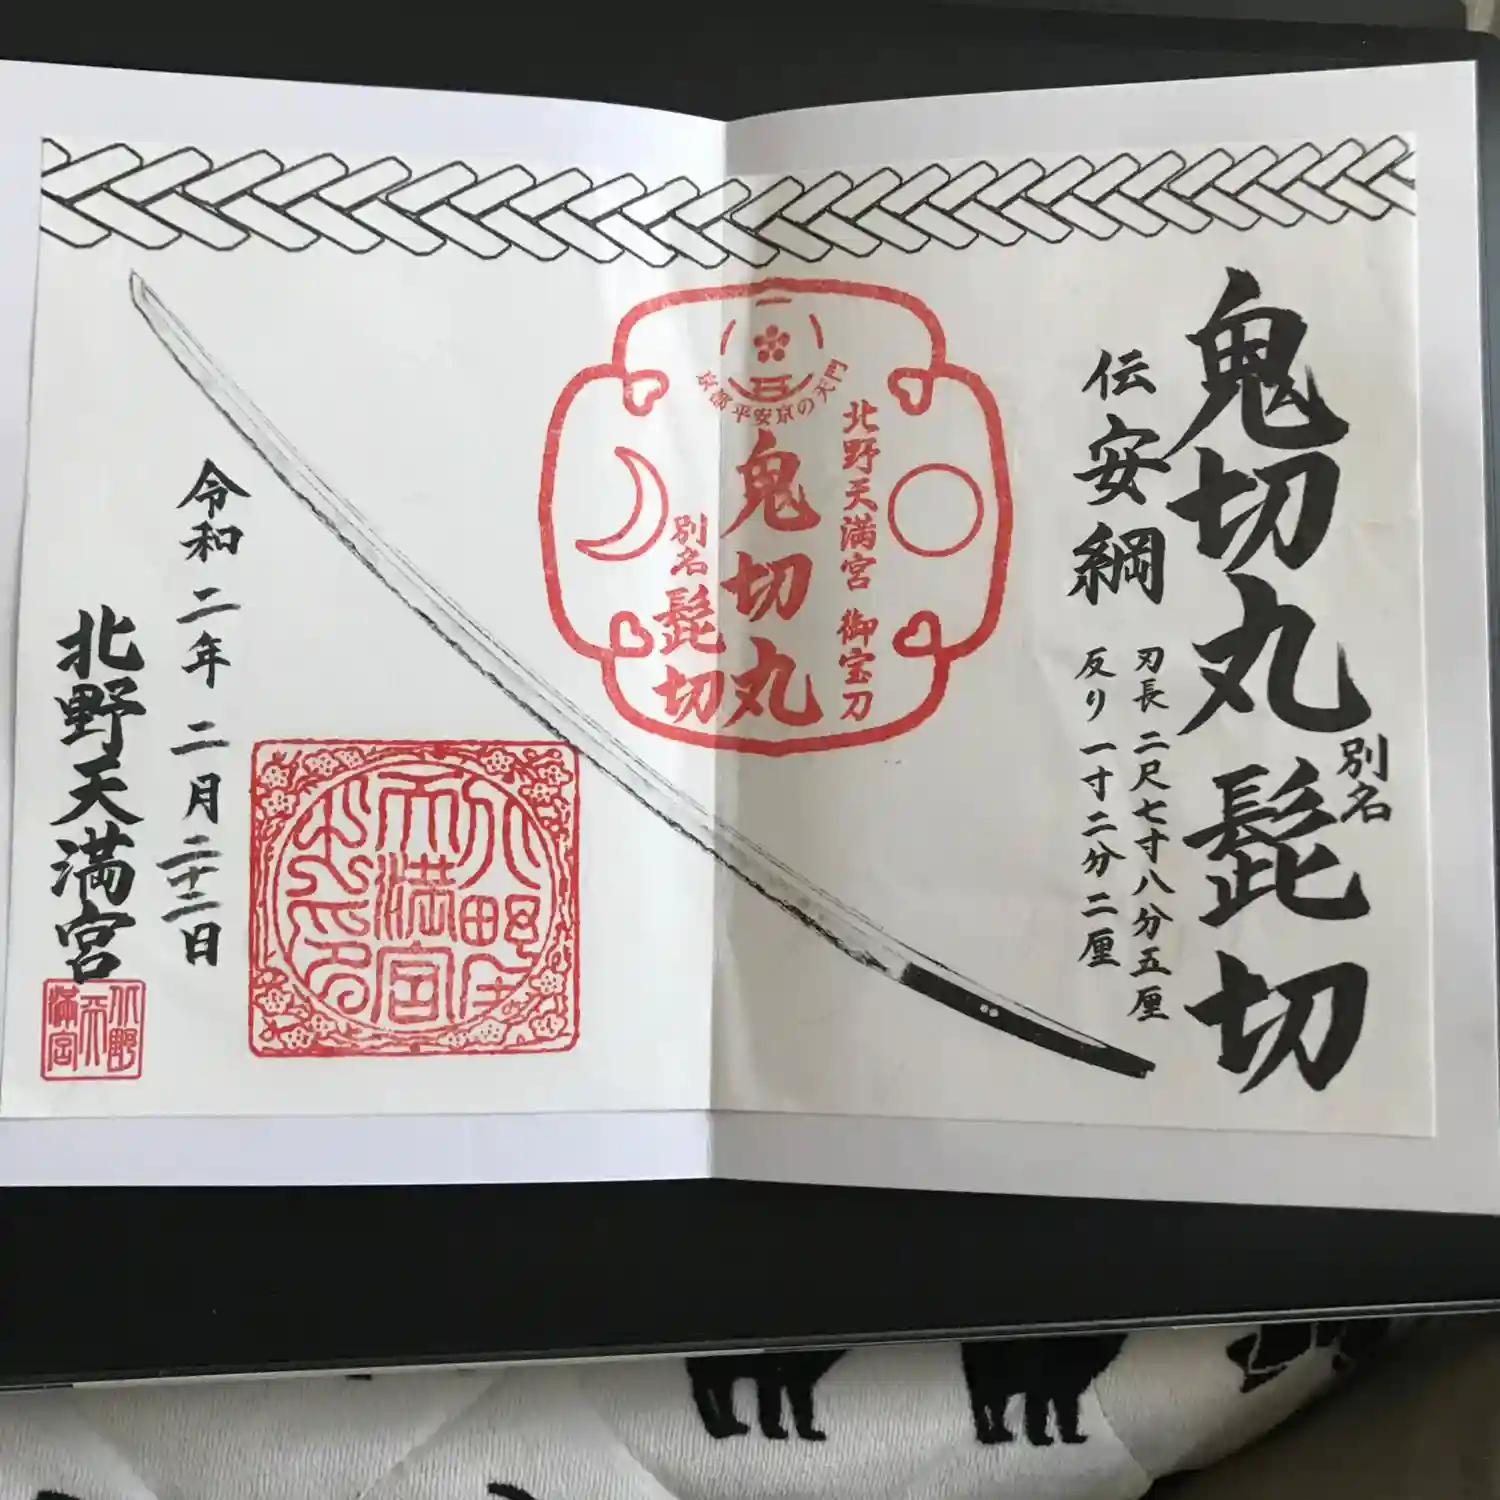 鬼切丸 別名 髭切
伝安綱
刃長 二尺七寸八分五厘
反り 一寸二分二厘
京都平安京の天門
北野天満宮 御宝刀
鬼切丸
別名 髭切
令和二年 二月二十二日
北野天満宮
北野
天
満宮